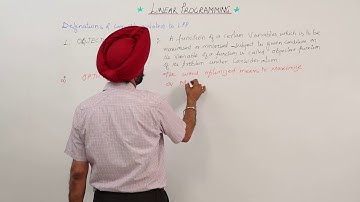 * LINEAR PROGRAMMING *
Definations & related to LPP
1. OBJECT : A function of a certain Variables which is to be
maximised or minimised subject to given condition on
the Variable of a function is called "objective function
of the problem under consideration
2. OPT The word optimized means to maximize
or